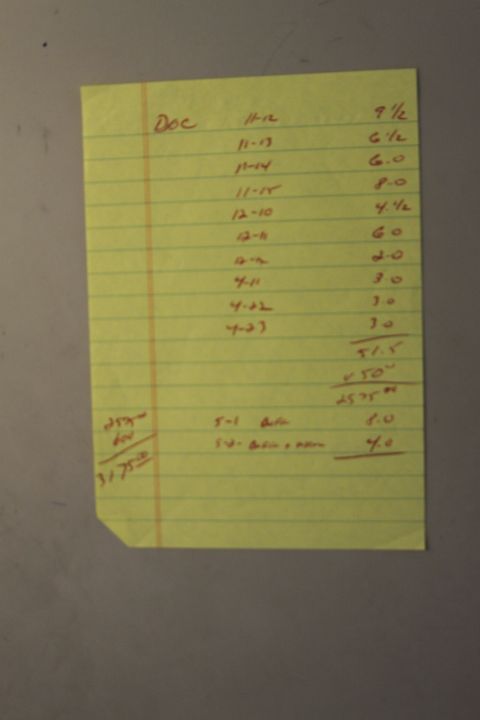 Doc 11-12 9 1/2
11-13 6 1/2
11-14 6.0
11-15 8.0
12-10 4. 1/2
12-11 6.0
12-12 2.0
4-11 3.0
4-22 3.0
4-23 3.0
51.5
x 50
2575
2575 5-1 8.0
600 5-2- 4.0
3175.00